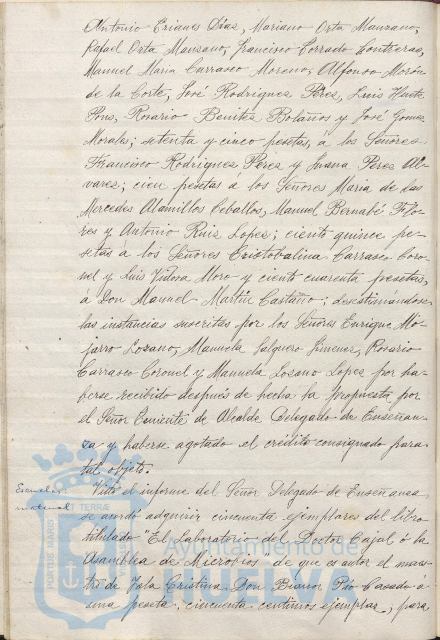 Antonio Crianes Días, Mariano Orta Manzano,
Rafael Orta Manzano, Francisco Forrado Contreras,
Manuel Maria Carrasco Moreno, Alfonso Morón
de la Corte, José Rodriguez Pérez, Luis Huete
Pons, Rosario Benitez Bolaños y José Gomez
Morales; setenta y cinco pesetas, a los Señores
Francisco Rodriguez Pérez y Juana Perez Al-
varez; cien pesetas a los Señores Maria de las
Mercedes Alamillos Ceballos, Manuel Bernabé Flo-
res y Antonio Ruiz Lopez; ciento quince pe-
setas á los Señores Cristobalina Carrasco Coro-
nel y Luis Moro y ciento cuarenta pesetas,
á Don Manuel Martín Castaño; desestimándose
las instancias suscritas por los Señores Enrique Mo-
jarro Lozano, Manuela Salguero Jimenez, Rosario
Carrasco Coronel y Manuela Lozano Lopez por ha-
berse recibido despues de hecha la propuesta por
el Señor Teniente de Alcalde Delegado de Enseñan-
za y haberse agotado el crédito consignado para
tal objeto.
Escuelas:
material
Visto el informe del Señor Delegado de Enseñanza
se acordó adquirir cincuenta ejemplares del libro
titulado "El Laboratorio del Doctor Cajal ó la
Asamblea de Microbios" de que es autor el maes-
tro de Isla Cristina Don Bianor Pío Casado á
una peseta cincuenta centimos ejemplar, para
Ayuntamiento de
HUELVA
PORTUS MARIS
TERRÆ